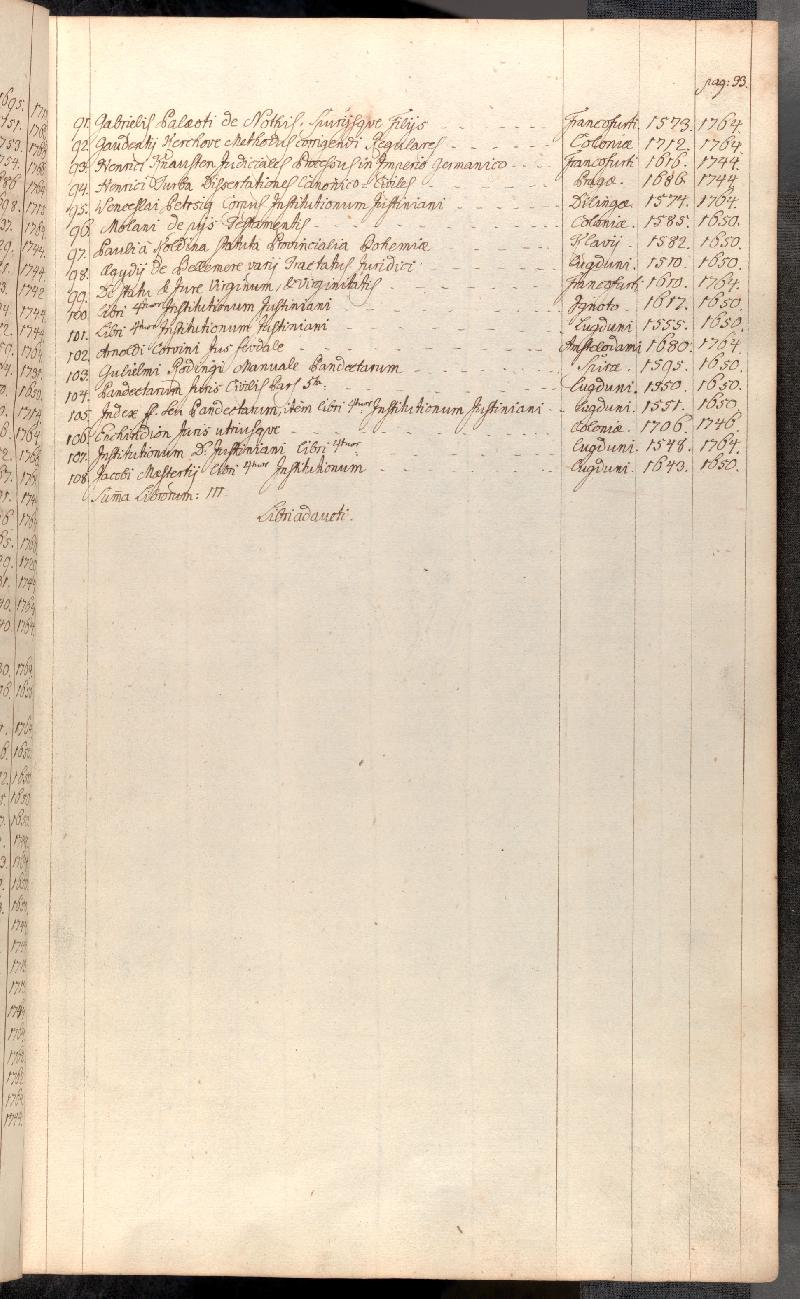 pag: 93.
91. Gabrielis Palæoti de Nothis, Spurijsque Filijs - - - Francofurti. 1573. 1764.
92. Gaudentij Kerchove Methodus corrigendi Regulares - - - Coloniæ 1712. 1764.
93. Henrici Knausten Judiciales Processus in Imperio Germanico - - - Francofurti 1616. 1744.
94. Henrici Dissertationes Canonico-Civiles - - - Pragæ. 1686. 1744.
95. Wenceslai Petrsig Corpus Institutionum Justiniani - - - Dilingæ. 1574. 1764.
96. Molani de pijs Testamentis - - - Coloniæ. 1585. 1650.
97. Pauli à Koldina Statuta Provincialia Bohemiæ - - - Klavij. 1582. 1650.
98. Ægydij de Bellemere varij Tractatus Juridici - - - Lugduni. 1510. 1650.
99. De Statu & Jure Virginum, & Virginitatis - - - Francofurti 1610. 1764.
100. Libri 4tuor Institutionum Justiniani - - - Ignoto. 1617. 1650.
101. Libri 4tuor Institutionum Justiniani - - - Lugduni 1555. 1650.
102. Arnoldi Corvini Jus feudale - - - Amstelodami 1680. 1764.
103. Gulielmi Redingi Manuale Pandectarum - - - 1595. 1650.
104. Pandectarum Juris Civilis Pars 5ta: - - - Lugduni. 1550. 1650.
105. Index ff. seu Pandectarum, item libri 4tuor Institutionum Justiniani - - Lugduni. 1551. 1650.
106. Enchiridion Juris utriusque - - - Coloniæ. 1706. 1746.
107. Institutionum D. Justiniani Libri 4tuor - - - Lugduni. 1548. 1764.
108. Jacobi Mæstertij Libri 4tuor Institutionum - - - Lugduni. 1643. 1650.
Suma Librorum: 111.
Libri adaucti.